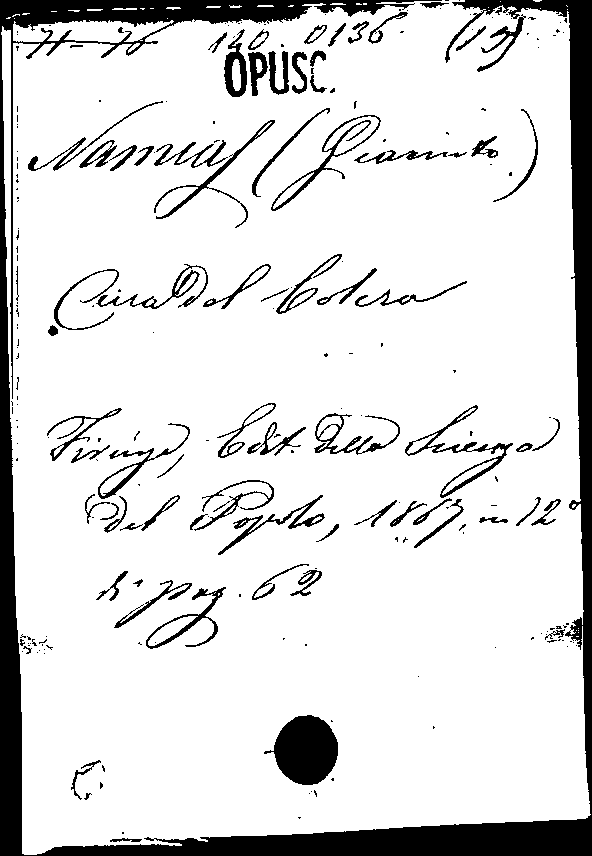 71-76 140 0136 (13)
OPUSC.
Namias (Giacinto)
Cura del Colera
Firenze, Edit. della Scienza
del Popolo, 1867, in 12°
di pag. 62